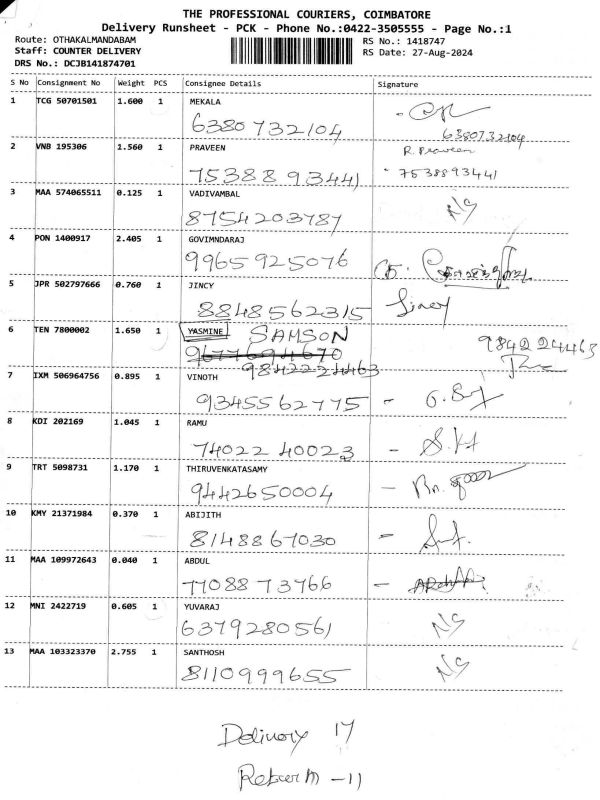 THE PROFESSIONAL COURIERS, COIMBATORE
Delivery Runsheet - PCK - Phone No.:0422-3505555 - Page No.:1
Route: OTHAKALMANDABAM
RS No.: 1418747
Staff: COUNTER DELIVERY
RS Date: 27-Aug-2024
DRS No.: DCJB141874701
S No Consignment No Weight PCS Consignee Details Signature
1 TCG 50701501 1.600 1 MEKALA
6380732104
6380732104
2 VNB 195306 1.560 1 PRAVEEN R. Praveen
7538893441 7538893441
3 MAA 574065511 0.125 1 VADIVAMBAL
8754203787 NS
4 PON 1400917 2.405 1 GOVIMNDARAJ
9965925076
5 JPR 502797666 0.760 1 JINCY
8848562315 Jincy
6 TEN 7800002 1.650 1 YASMINE SAMSON 9842224463
9677694670
9842224463
7 IXM 506964756 0.895 1 VINOTH
9345562775 -
8 KDI 202169 1.045 1 RAMU
7402240023 -
9 TRT 5098731 1.170 1 THIRUVENKATASAMY
9442650004 -
10 KMY 21371984 0.370 1 ABIJITH
8148867030 -
11 MAA 109972643 0.040 1 ABDUL
7708873766 -
12 MNI 2422719 0.605 1 YUVARAJ
6379280561 NS
13 MAA 103323370 2.755 1 SANTHOSH
8110999655 NS
Delivery 17
Return - 11